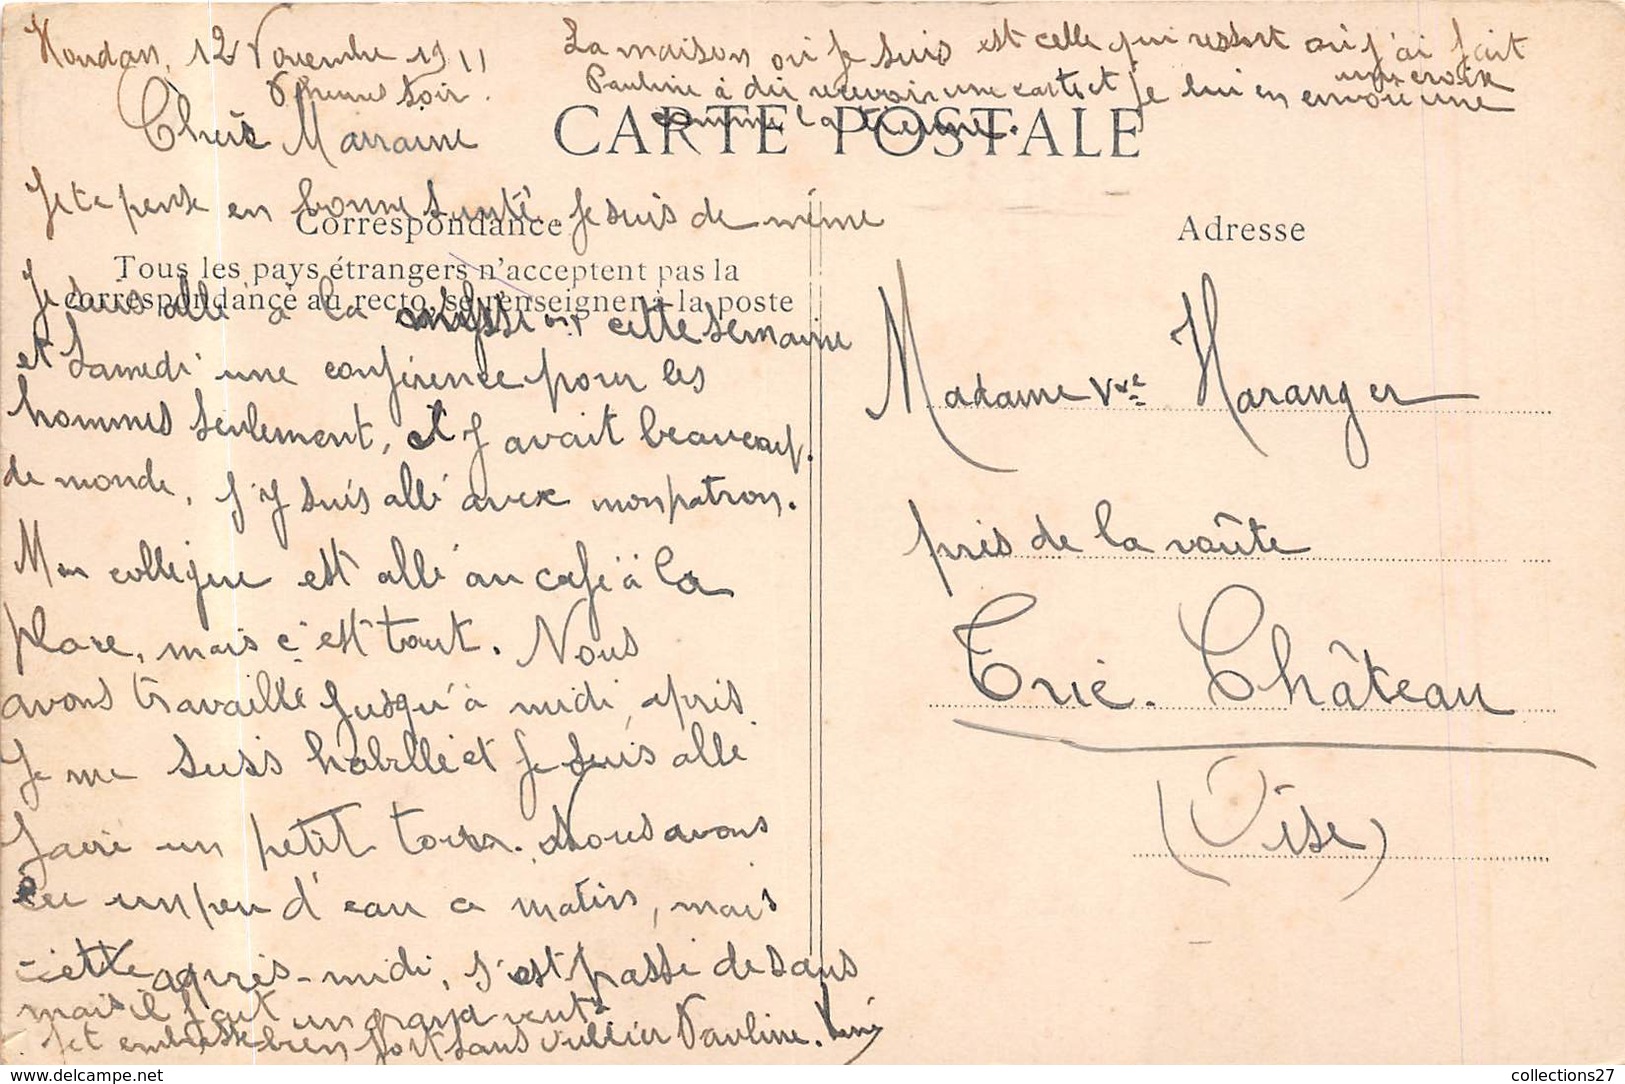 Houdan, 12 Novembre 1911
soir.
Chère Marraine
Je te pense en bonne santé. Je suis de même
Je suis allé à la mission cette semaine
et Samedi une conférence pour les
hommes seulement, et J avait beaucoup.
de monde, J'y suis allé avec mon patron.
Mon collègue est allé au café à la
place, mais c'est tout. Nous
avons travaillé Jusqu'à midi, après
Je me suis habillé et Je suis allé
faire un petit tour. Nous avons
eu un peu d'eau ce matin, mais
cette après-midi, s'est passé de sans
mais il fait un grand vent
Jet embrasse bien fort sans oublier Pauline. René
La maison où je suis est celle qui ressort où j'ai fait
une croix
Pauline à du recevoir une carte et je lui en envoie une
comme la tienne.
CARTE POSTALE
Correspondance
Tous les pays étrangers n'acceptent pas la
correspondance au recto, se renseigner à la poste
Adresse
Madame Vve Haranger
près de la voûte
Trie-Château
(Oise)
collections27